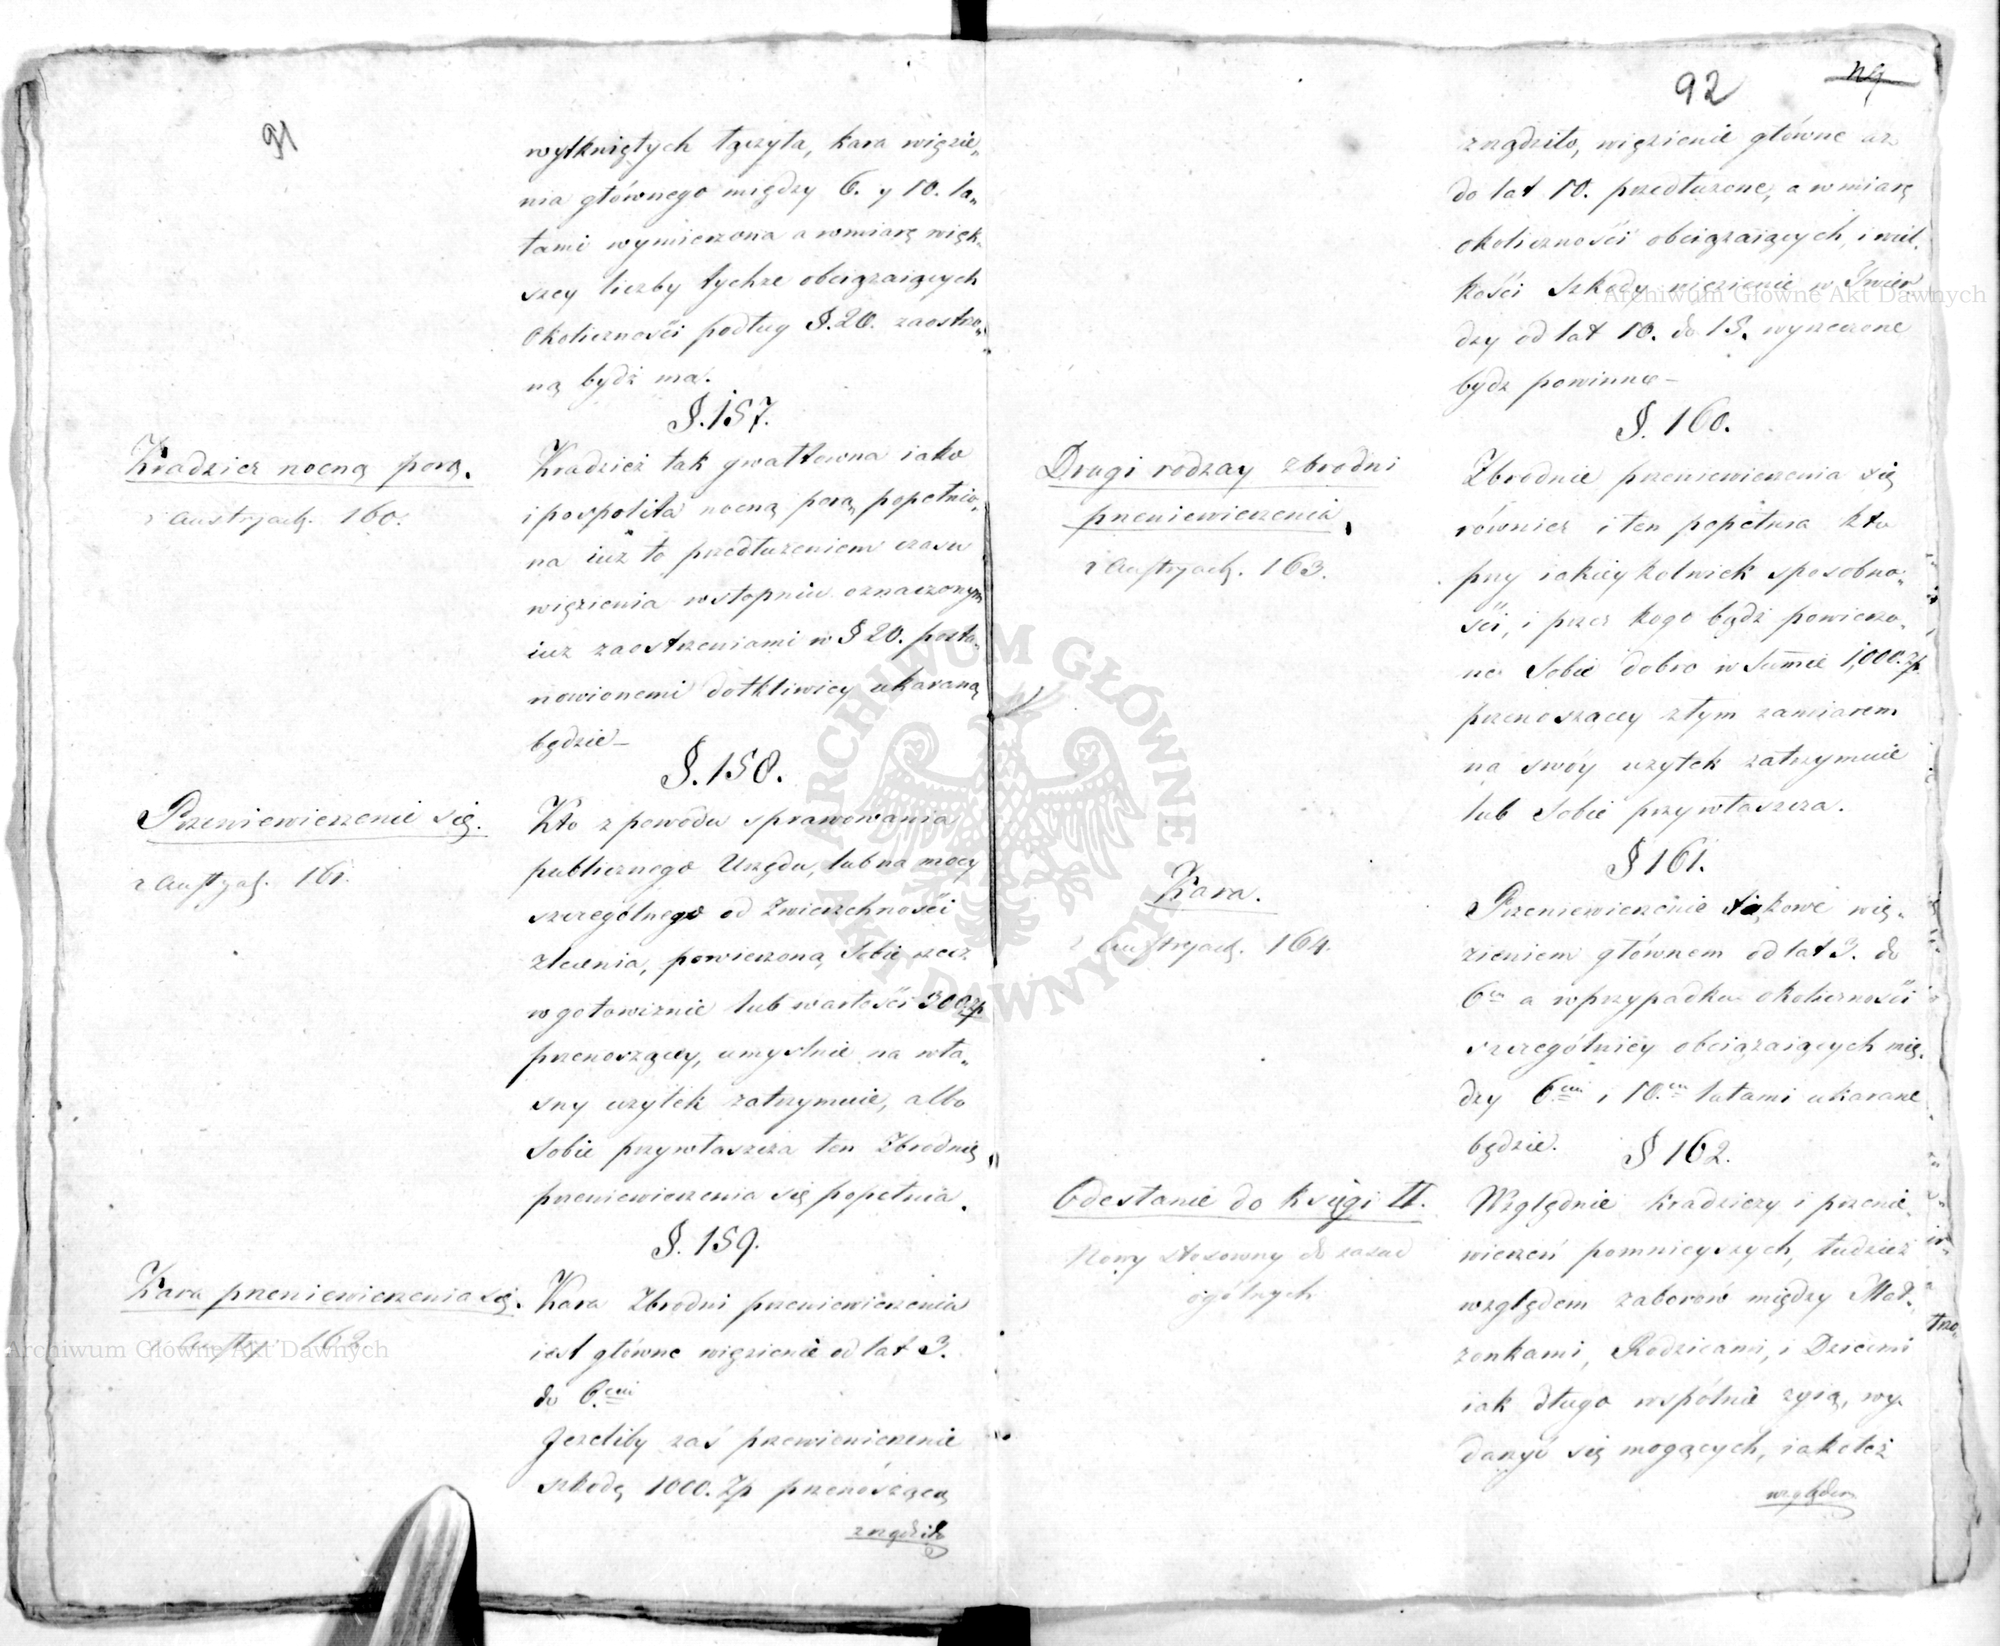 91
wytkniętych łączyła, kara więzie„
nia głównego między 6. y 10. la„
tami wymierzona a wmiarę więk„
szey liczby tychże obciązaiących
okoliczności podług §.20. zaostrzo„
ną bydź ma.
§.157.
Kradzież nocną porą.
z Austryack. 160.
Kradzież tak gwałtowna iako
i pospolita nocną porą popełnio„
na iuż to przedłużeniem czasu
więzienia wstopniu oznaczonym
iuż zaostrzeniami w §20. posta„
nowionemi dotkliwiey ukaraną
będzie—
§.158.
Przeniewierzenie się.
z Austryac. 161.
Kto z powodu sprawowania
publicznego Urzędu, lub na mocy
szczególnego od Zwierzchności
zlecenia, powierzoną Sobie rzecz
w gotowiznie lub wartości 300 zp
przenoszącey, umyslnie na wła„
sny uzytek zatrzymuie, albo
Sobie przywłaszcza ten Zbrodnię
przeniewierzenia się popełnia.
§. 159.
Kara przeniewierzenia się.
z Austry. 162
Kara Zbrodni przeniewierzenia
iest główne więzienie od lat 3.
do 6.ciu
Jezeliby zaś przewienierzenie
szkodę 1000. Zp przenoszącą
zrządziło
92
zrządziło, więzienie główne aż
do lat 10. przedłużone, a wmiarę
okoliczności obciązaiących, i wiel„
kości Szkody więzienie w Twier„
dzy od lat 10. do 15. wyrzeczone
bydź powinno—
§. 160.
Drugi rodzay zbrodni
przeniewierzenia.
z Austryack. 163.
Zbrodnie przeniewierzenia się
równiez i ten popełnia kto
przy iakieykolwiek sposobno„
ści, i przez kogo bądź powierzo„
ne Sobie dobro w Summie 1,000. Zp
przenoszącey złym zamiarem
na swóy uzytek zatrzymuie
lub Sobie przywłaszcza.
§ 161.
Kara.
z Austryack. 164.
Przeniewierzenie takowe wię„
zieniem głównem od lat 3. do
6ciu a wprzypadku okoliczności
szczególniey obciązaiących mię„
dzy 6.ciu i 10.ciu latami ukarane
będzie.
§ 162.
Odesłanie do księgi II.
Nowy stosowny do zasad
ogólnych
Względnie kradzieży i przenie„
wierzeń pomnieyszych, tudzież
względem zaborów między Mał„
zonkami, Rodzicami, i Dziećmi
iak długo wspólnie zyią, wy„
darzyć się mogących, iako też
względem
Archiwum Główne Akt Dawnych
Archiwum Główne Akt Dawnych
ARCHIWUM GŁÓWNE AKT DAWNYCH